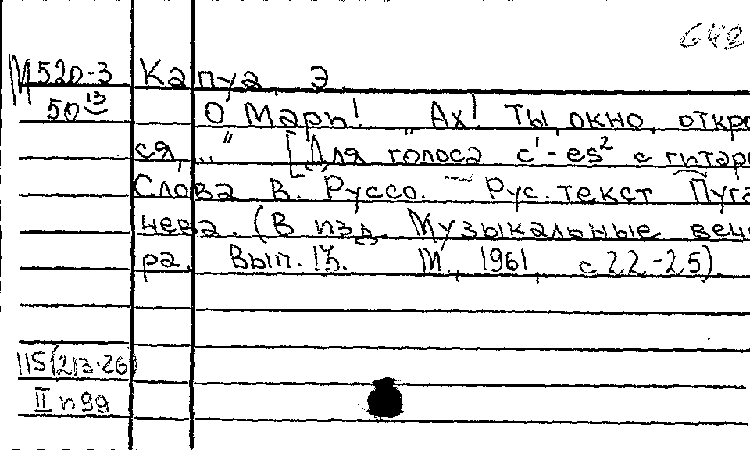 642
М520-3 Капуа, Э.
50 13 О Марь! "Ах! Ты, окно, откро
ся, ..." [Для голоса c¹-es² с гитаро
Слова В. Руссо. — Рус. текст Пуга
чева. (В изд. Музыкальные вече
ра. Вып. 13. М., 1961, с 22-25).
115(213-26)
II п 99